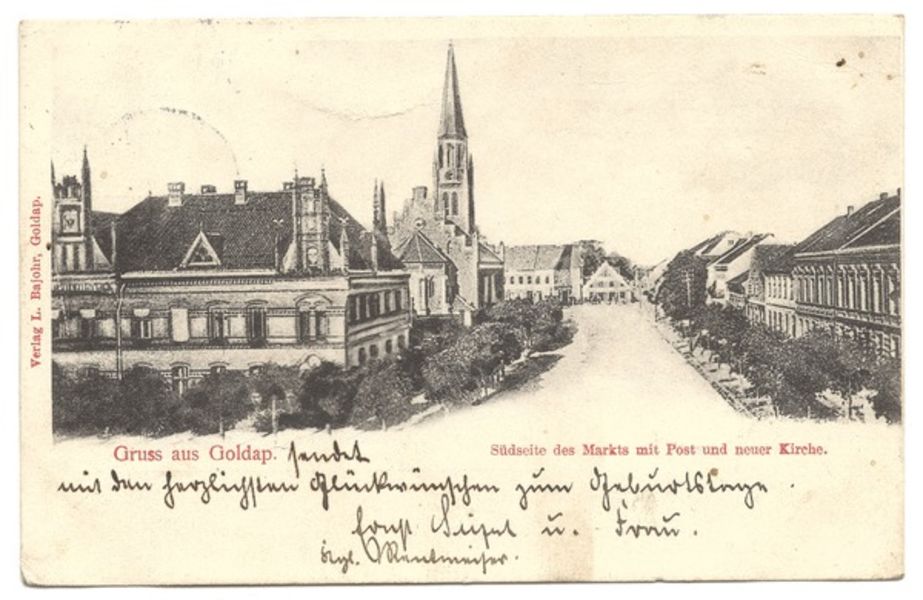 Verlag L. Bajohr, Goldap.
Gruss aus Goldap. sendet
Südseite des Markts mit Post und neuer Kirche.
mit den herzlichsten Glückwünschen zum Geburtstage.
Ernst u. Frau.
Kgl. Rentmeister.